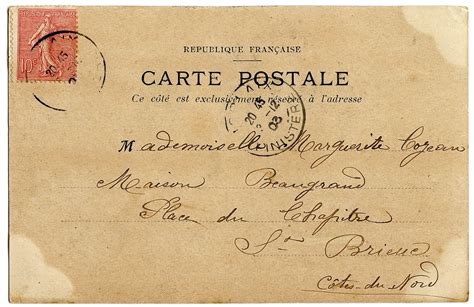 REPUBLIQUE FRANÇAISE
CARTE POSTALE
Ce côté est exclusivement réservé à l'adresse
10c
20 45
20 45
-12
03
FINISTERE
Mademoiselle Marguerite Cozean
Maison Beaugrand
Place du Chapitre
St Brieuc
Côtes-du-Nord